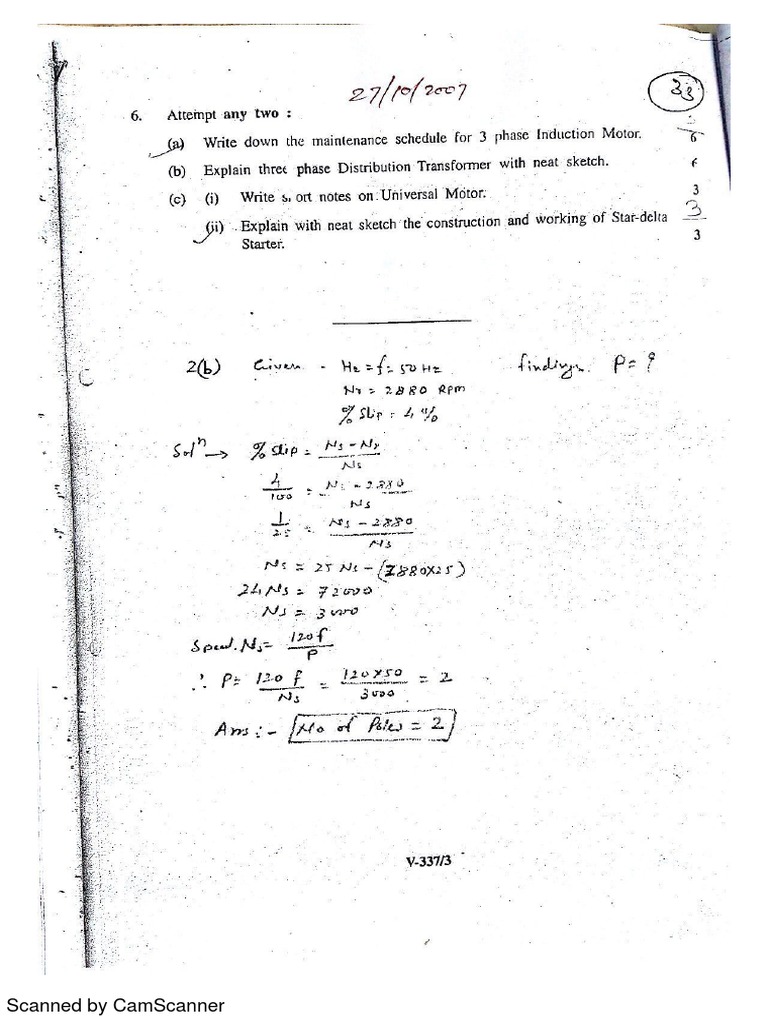 27/10/2007
33
6. Attempt any two :
(a) Write down the maintenance schedule for 3 phase Induction Motor. 6
(b) Explain three phase Distribution Transformer with neat sketch. 6
(c) (i) Write s ort notes on Universal Motor. 3
(ii) Explain with neat sketch the construction and working of Star-delta 3
Starter. 3
2(b) Given - Hz = f = 50 Hz findings. P = ?
Nr = 2880 RPM
% Slip = 4 %
Solⁿ → % Slip = Ns - Nr / Ns
4/100 = Ns - 2880 / Ns
1/25 = Ns - 2880 / Ns
Ns = 25 Ns - (2880x25)
24 Ns = 72000
Ns = 3000
Speed. Ns = 120 f / P
∴ P = 120 f / Ns = 120 x 50 / 3000 = 2
Ans :- No of Poles = 2
V-337/3
Scanned by CamScanner